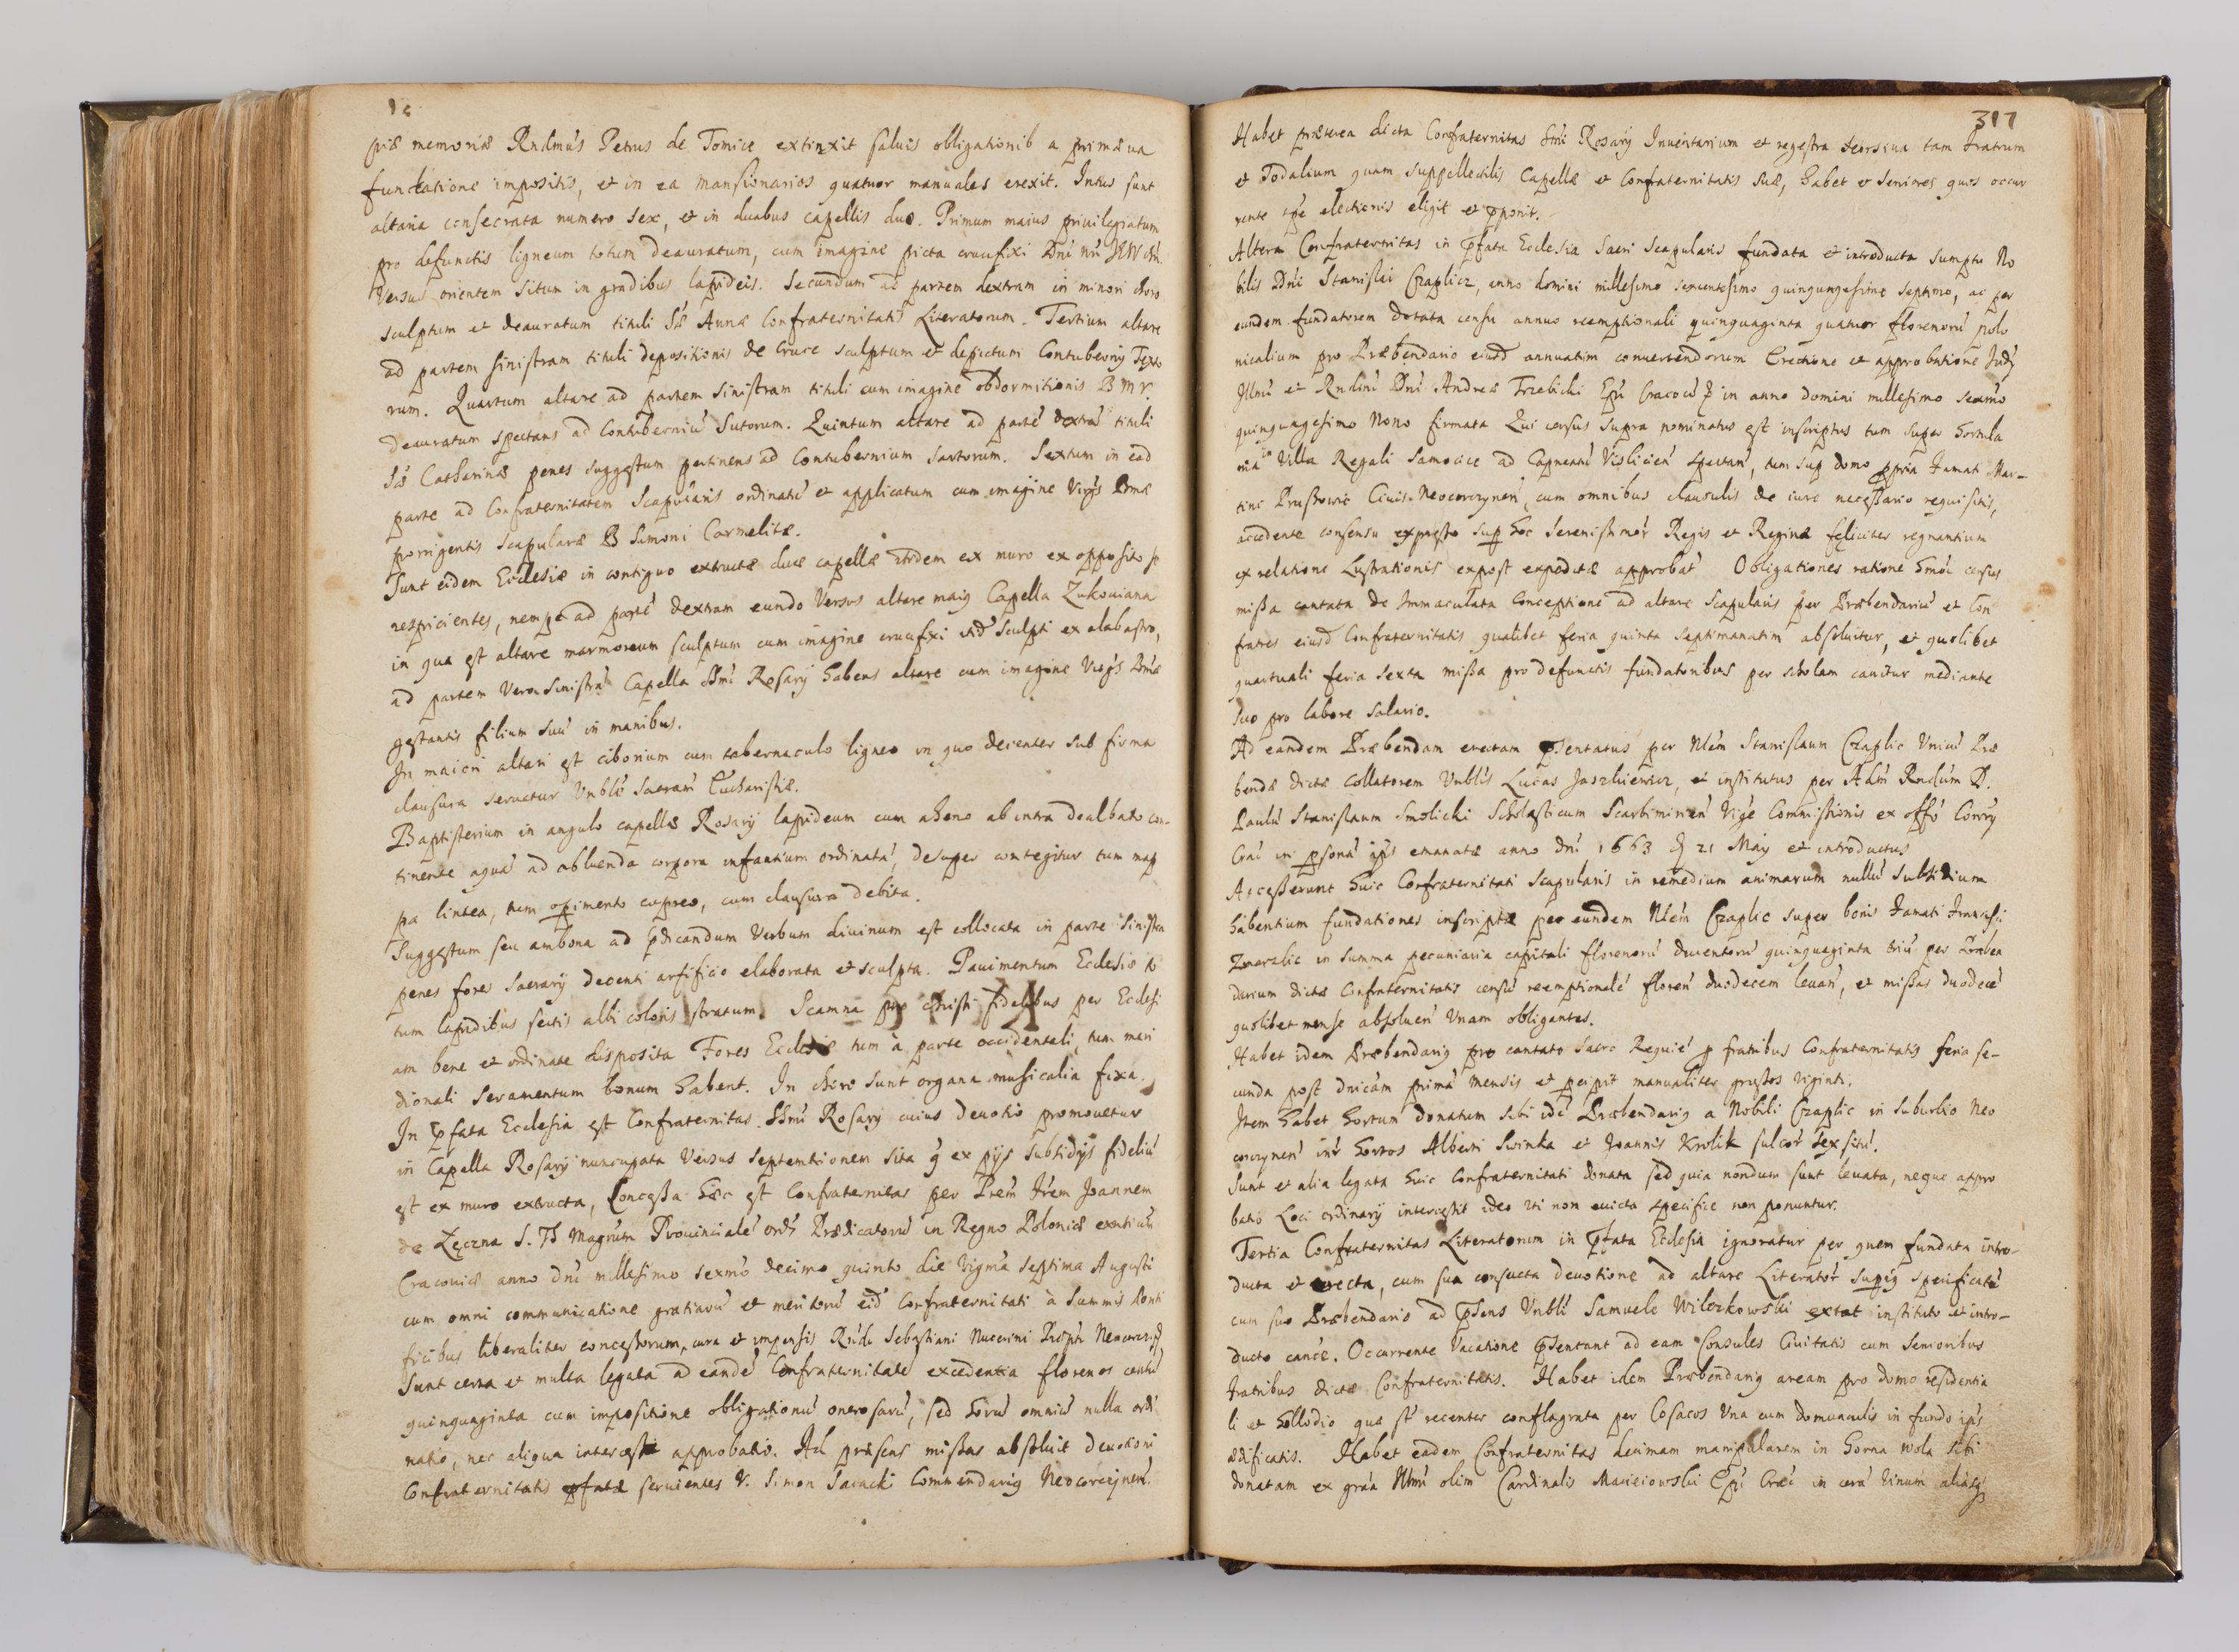 piæ memoriæ Rndmûs Petrus de Tomice extinxit saluis obligationib a primæua
fundatione impositis, et in ea Mansionarios quatuor manuales erexit. Intus sunt
altaria consecrata numero sex, et in duabus capellis duo. Primum maius privilegiatum
pro defunctis ligneum totum deauratum, cum imagine picta crucifixi Dni nri
Versus orientem situm in gradibus lapideis. Secundum ad partem dextram in minori choro
sculptum et deauratum tituli S. Annæ Confraternitatis Literatorum. Tertium altare
ad partem sinistram tituli depositionis de Cruce sculptum et depictum Contubernij Texto
rum. Quartum altare ad partem sinistram tituli cum imagine obdormitionis B M V.
deauratum spectans ad Contuberniu Sutorum. Quintum altare ad parte dextra tituli
S. Catharinæ penes suggestum pertinens ad Contubernium Sartorum. Sextum in ead
parte ad Confraternitatem Scapularis ordinatu et applicatum cum imagine Virgis Bmæ
porrigentis Scapulare B Simoni Carmelitæ.
Sunt eidem Ecclesiæ in contiguo extructæ duæ capellæ itidem ex muro ex opposito se
respicientes, nempe ad parte dextram eundo Versus altare maig Capella Zukouiana
in qua est altare marmoreum sculptum cum imagine crucifixi itid sculpti ex alabastro,
ad partem Vero sinistra Capella SSmi Rosarij habens altare cum imagine Virgis Bmæ
gestantis filium suu in manibus.
In maiori altari est ciborium cum tabernaculo ligneo in quo decenter sub firma
clausura seruatur Vnble Sacram Eucharistiæ.
Baptisterium in angulo capellæ Rosarij lapideum cum aheno ab intra dealbato con-
tinente aqua ad abluenda corpora infantium ordinata, desuper contegitur tum map
pa lintea, tum opimento cupreo, cum clausura debita.
Suggestum seu ambona ad pdicandum Verbum diuinum est collocata in parte sinistra
penes fores Sacrarij decenti artificio elaborata et sculpta. Pauimentum Ecclesiæ to
tum lapidibus sectis albi coloris stratum. Scamna pro christi fidelibus per Ecclesi
am bene et ordinate disposita Fores Ecclesiæ tum à parte occidentali, tum meri
dionali Seramentum bonum habent. In choro sunt organa musicalia fixa.
In pfata Ecclesia est Confraternitas SSmi Rosarij cuius deuotio promouetur
in Capella Rosarij nuncupata Versus septemtrionem sita q ex pijs subsidijs fideliu
est ex muro extructa, Concessa hæc est Confraternitas per Prem Frem Joannem
de Łęczna S. Th Magrum Prouinciale ord Prædicatoru in Regno Poloniæ exntium
Cracouiæ anno dni millesimo sexmo decimo quinto die Vigma septima Augusti
cum omni communicatione gratiaru et meritoru eid Confraternitati à Summis Ponti
ficibus liberaliter concessorum, cura et impensis Rndi Sebastiani Nucerini Præpti
Sunt certa et multa legata ad eande Confraternitate excedentia florenos centu
quinquaginta cum impositione obligationu onerosaru, sed horu omniu nulla ordi
natio, nec aliqua intercessit approbatio. Ad præsens missas absoluit deuotioni
Confraternitatis pfatæ seruientes V. Simon Commendarig Neocorczynen.
317
Habet præterea dicta Confraternitas Smi Rosarij Inuentarium et regestra seorsiua tam Fratrum
et Sodalium quam suppellectilis Capellæ et Confraternitatis suæ, habet et Seniores quos occur
rente tpe electionis eligit et pponit.
Altera Confraternitas in pfata Ecclesia Sacri Scapularis fundata et introducta sumptu No
bilis Dni Stanislai Czaplicz, anno domini millesimo sexcentesimo quinquagesimo septimo, ac per
eundem fundatorem dotata censu annuo reemptionali quinquaginta quatuor florenoru polo
nicalium pro Præbendario eiusd annuatim conuertendorum Erectione et approbatione
Illmi et Rndmi Dni Andreæ Trzebicki Epi in anno domini millesimo sexmo
quinquagesimo Nono firmata Qui census supra nominatus est inscriptus tum super hortula
nia in Villa Regali Samocice ad Capneatu Vislicien spectan, tum sup domo ppria Famati Mar-
tini Pruszowic Ciuis Neocorczynen, cum omnibus clausulis de iure necessario requisitis,
accedente consensu expresso sup hoc Serenissimor Regis et Reginæ feliciter regnantium
ex relatione Lustrationis expost expeditæ approbat Obligationes ratione hmoi census
missa cantata de Immaculata Conceptione ad altare Scapularis per Præbendariu et Con
fratres eiusd Confraternitatis qualibet feria quinta septimanatim absoluitur, et quolibet
quartuali feria sexta missa pro defunctis fundatoribus per scholam canitur mediante
suo pro labore salario.
Ad eandem Præbendam erectam psentatus per Nlem Stanislaum Czaplic Vnicu Præ
bendæ dictæ Collatorem Vnblis Lucas Jaszkiewicz, et institutus per Adm Rndum D.
Paulu Stanislaum Smolicki Scholasticum Scarbimirien Vige Commissionis ex offo
in psona ipis emanatæ anno dni 1663 D 21 Maij et introductus
Accesserunt huic Confraternitati Scapularis in remedium animarum nullu subsidium
habentium fundationes inscriptæ per eundem Nlem Czaplic super bonis Famati
in summa pecuniaria capitali florenoru ducentoru quinquaginta triu per Præben
darium dictæ Confraternitatis censu reemptionale floren duodecem leuan, et missas duodece
quolibet mense absoluen Vnam obligantes.
Habet idem Præbendarig pro cantato Sacro Requie p fratribus Confraternitatis feria se-
cunda post dnicam prima mensis et pcipit manualiter grossos viginti.
Item habet hortum donatum sibi ide Præbendarig a Nobili Czaplic in suburbio Neo
corczynen intr hortos Alberti Swinka et Joannis Krolik sulcor sex situ.
Sunt et alia legata huic Confraternitati donata sed quia nondum sunt leuata, neque appro
batio Loci ordinarij intercessit ideo uti non euicta specifice non ponuntur.
Tertia Confraternitas Literatorum in pfata Ecclesia ignoratur per quem fundata intro-
ducta et erecta, cum sua consueta deuotione ad altare Literator supig specificatu
cum suo Præbendario ad psens Vnbli Samuele Wilczkowski extat instituto et intro-
ducto cance. Occurrente Vacatione psentant ad eam Consules Ciuitatis cum Senioribus
Fratribus dictæ Confraternitatis. Habet idem Præbendarig aream pro domo residentia
li et hollodio quæ st recenter conflagrata per Cosacos Vna cum domunculis in fundo ipis
ædificatis. Habet eadem Confraternitas decimam manipularem in Gorna Wola sibi
donatam ex gratia Illmi olim Cardinalis Macieiowski Epi in cera vinum aliasq